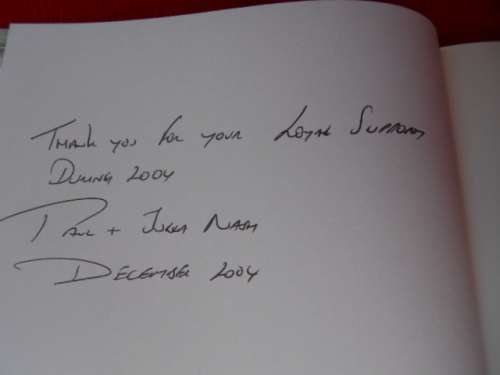 Thank you for your Loyal Support
During 2004
Paul + Julia Nash
December 2004